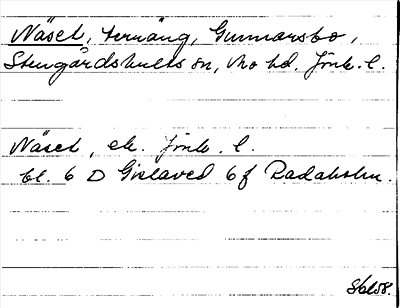 Näset, ternäng, Gunnarsbo,
Stengårdshults sn, Mo hd. Jönk. l.
Näset, ek. Jönk. l.
bl. 6 D Gislaved 6 f Radaholm.